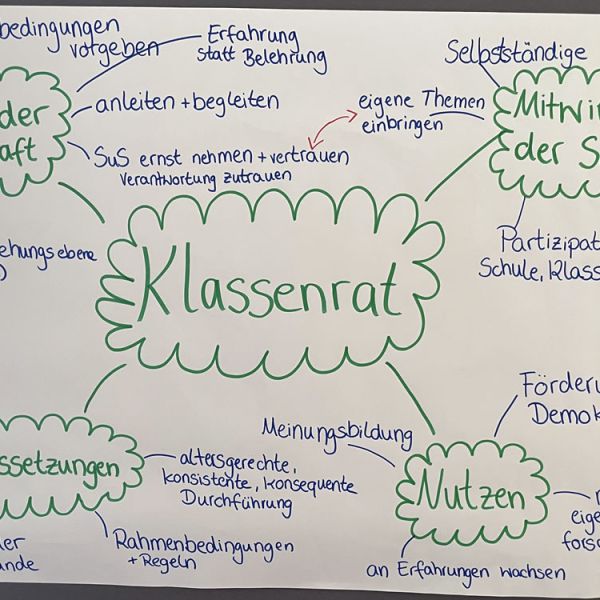 bedingungen
vorgeben
Erfahrung
statt Belehrung
anleiten + begleiten
SuS ernst nehmen + vertrauen
Verantwortung zutrauen
der
aft
ehungsebene
Selbstständige
eigene Themen
einbringen
Mitwir
der S
Partizipat
Schule, Klass
Klassenrat
ssetzungen
altersgerechte,
konsistente, konsequente
Durchführung
Rahmenbedingungen
+ Regeln
unde
Meinungsbildung
Nutzen
Förderu
Demok
eige
forsc
an Erfahrungen wachsen